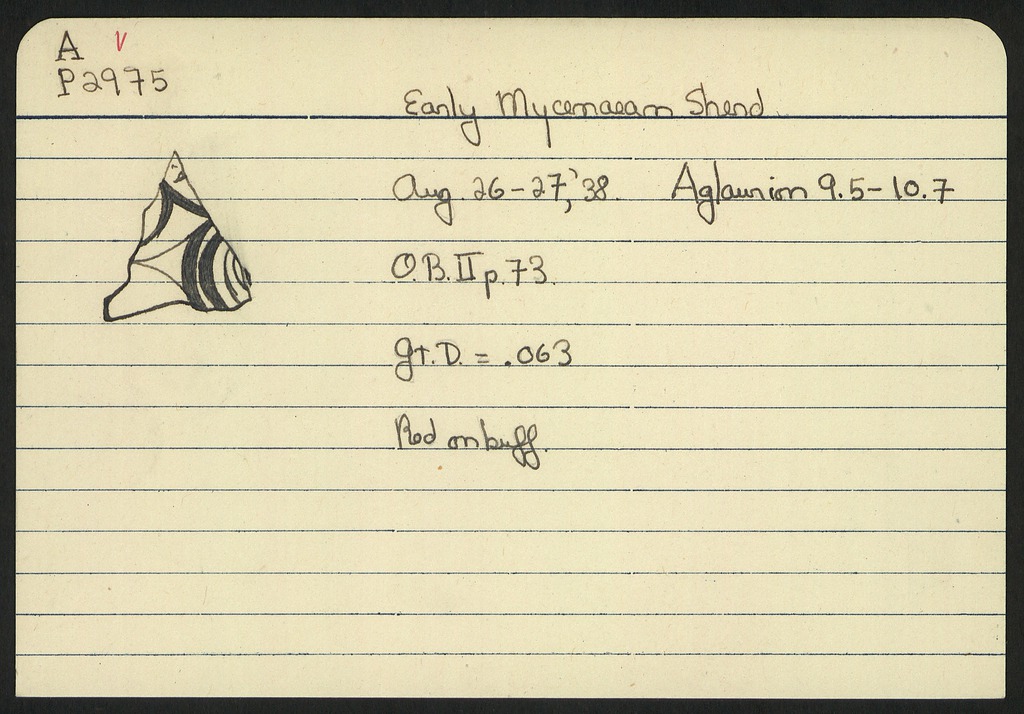 A V
P2975
Early Mycenaean Sherd.
Aug. 26-27, '38. Aglaurion 9.5-10.7
O.B. II p. 73.
gt. D. = .063
Red on buff.